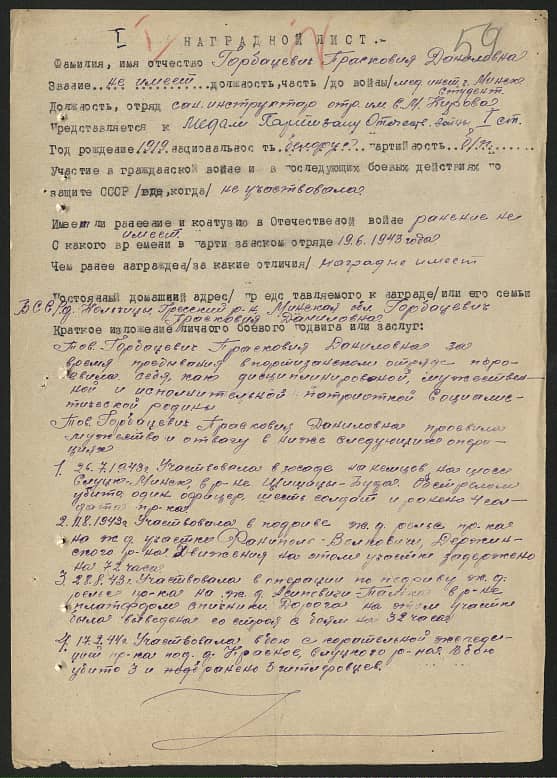 I 59
НАГРАДНОЙ ЛИСТ.-
Фамилия, имя отчество Горбацевич Прасковия Даниловна
Звание....не имеет...........должность, часть /до войны/мед. инст. г. Минск
студент.
Должность, отряд сан. инструктор отр. им. С. М. Кирова
Представляется к Медали Партизану Отечеств. войны I ст.
Год рождение 1919 национальность партийность б/п
Участие в гражданской войне и в последующих боевых действиях по
защите СССР /где,когда/ не участвовала
Имеет ли ранение и контузию в Отечественой войне ранение не
имеет.
С какого времени в партизанском отряде 19.6.1943 года
Чем ранее награжден/за какие отличия/ награды не имеет
Постоянный домашний адрес/ представляемого к награде/или его семьи
БССР, д. Гресский р-н, Минской обл. Горбацевич
Прасковия Даниловна
Краткое изложение личного боевого подвига или заслуг:
Тов. Горбацевич Прасковия Даниловна за
время пребывания в партизанском отряде
себя, как дисциплинированой, мужествен-
ной и исполнительной патриоткой Социалис-
тической родины
Тов. Горбацевич Прасковия Даниловна проявила
мужество и отвагу в ниже следующих опера-
циях
1. 26.7.1943г. Участвовала в засаде на немцев на шоссе
Слуцк-Минск, в р-не
убита один офицер, шесть солдат и ранено 4 сол-
дата пр-ка
2. 1943г. Участвовала в подриве ж.д. рельс пр-ка
на ж.д. участке Фаниполь- Держин-
ского р-на. Движения на этом участке задержено
на 72 часа
3. 28.8.43г. Участвовала в операции по подриву ж.д.
рельс пр-ка на ж.д. Осиповичи- в р-не
платформе Дорога на этом участке
была выведена со строя с боям на 32 часа
4. 17.2.44г. Участвовала в бою с карательной экспеди-
ций пр-ка под д. Красное, Слуцкого р-на. В бою
убито 3 и ранено 5 гитлеровцев.